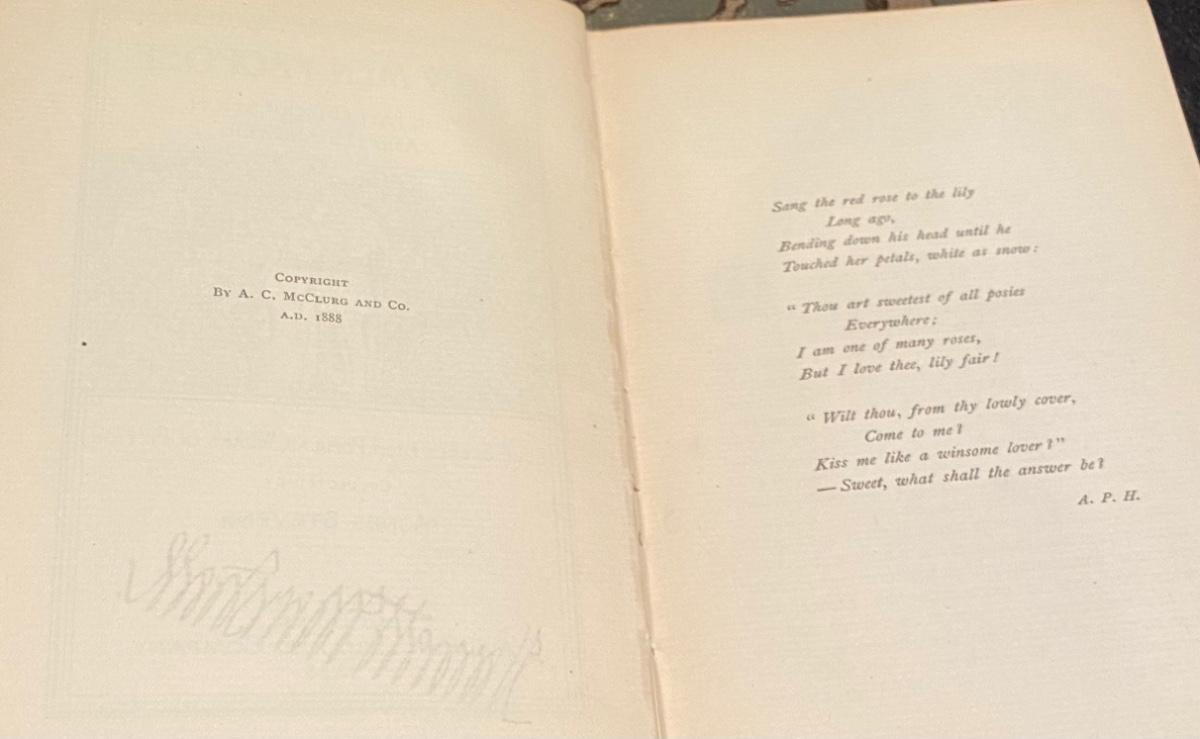 COPYRIGHT
BY A. C. MCCLURG AND CO.
A.D. 1888
Sang the red rose to the lily
Long ago,
Bending down his head until he
Touched her petals, white as snow:
“Thou art sweetest of all posies
Everywhere;
I am one of many roses,
But I love thee, lily fair!
“Wilt thou, from thy lowly cover,
Come to me?
Kiss me like a winsome lover?”
— Sweet, what shall the answer be?
A. P. H.